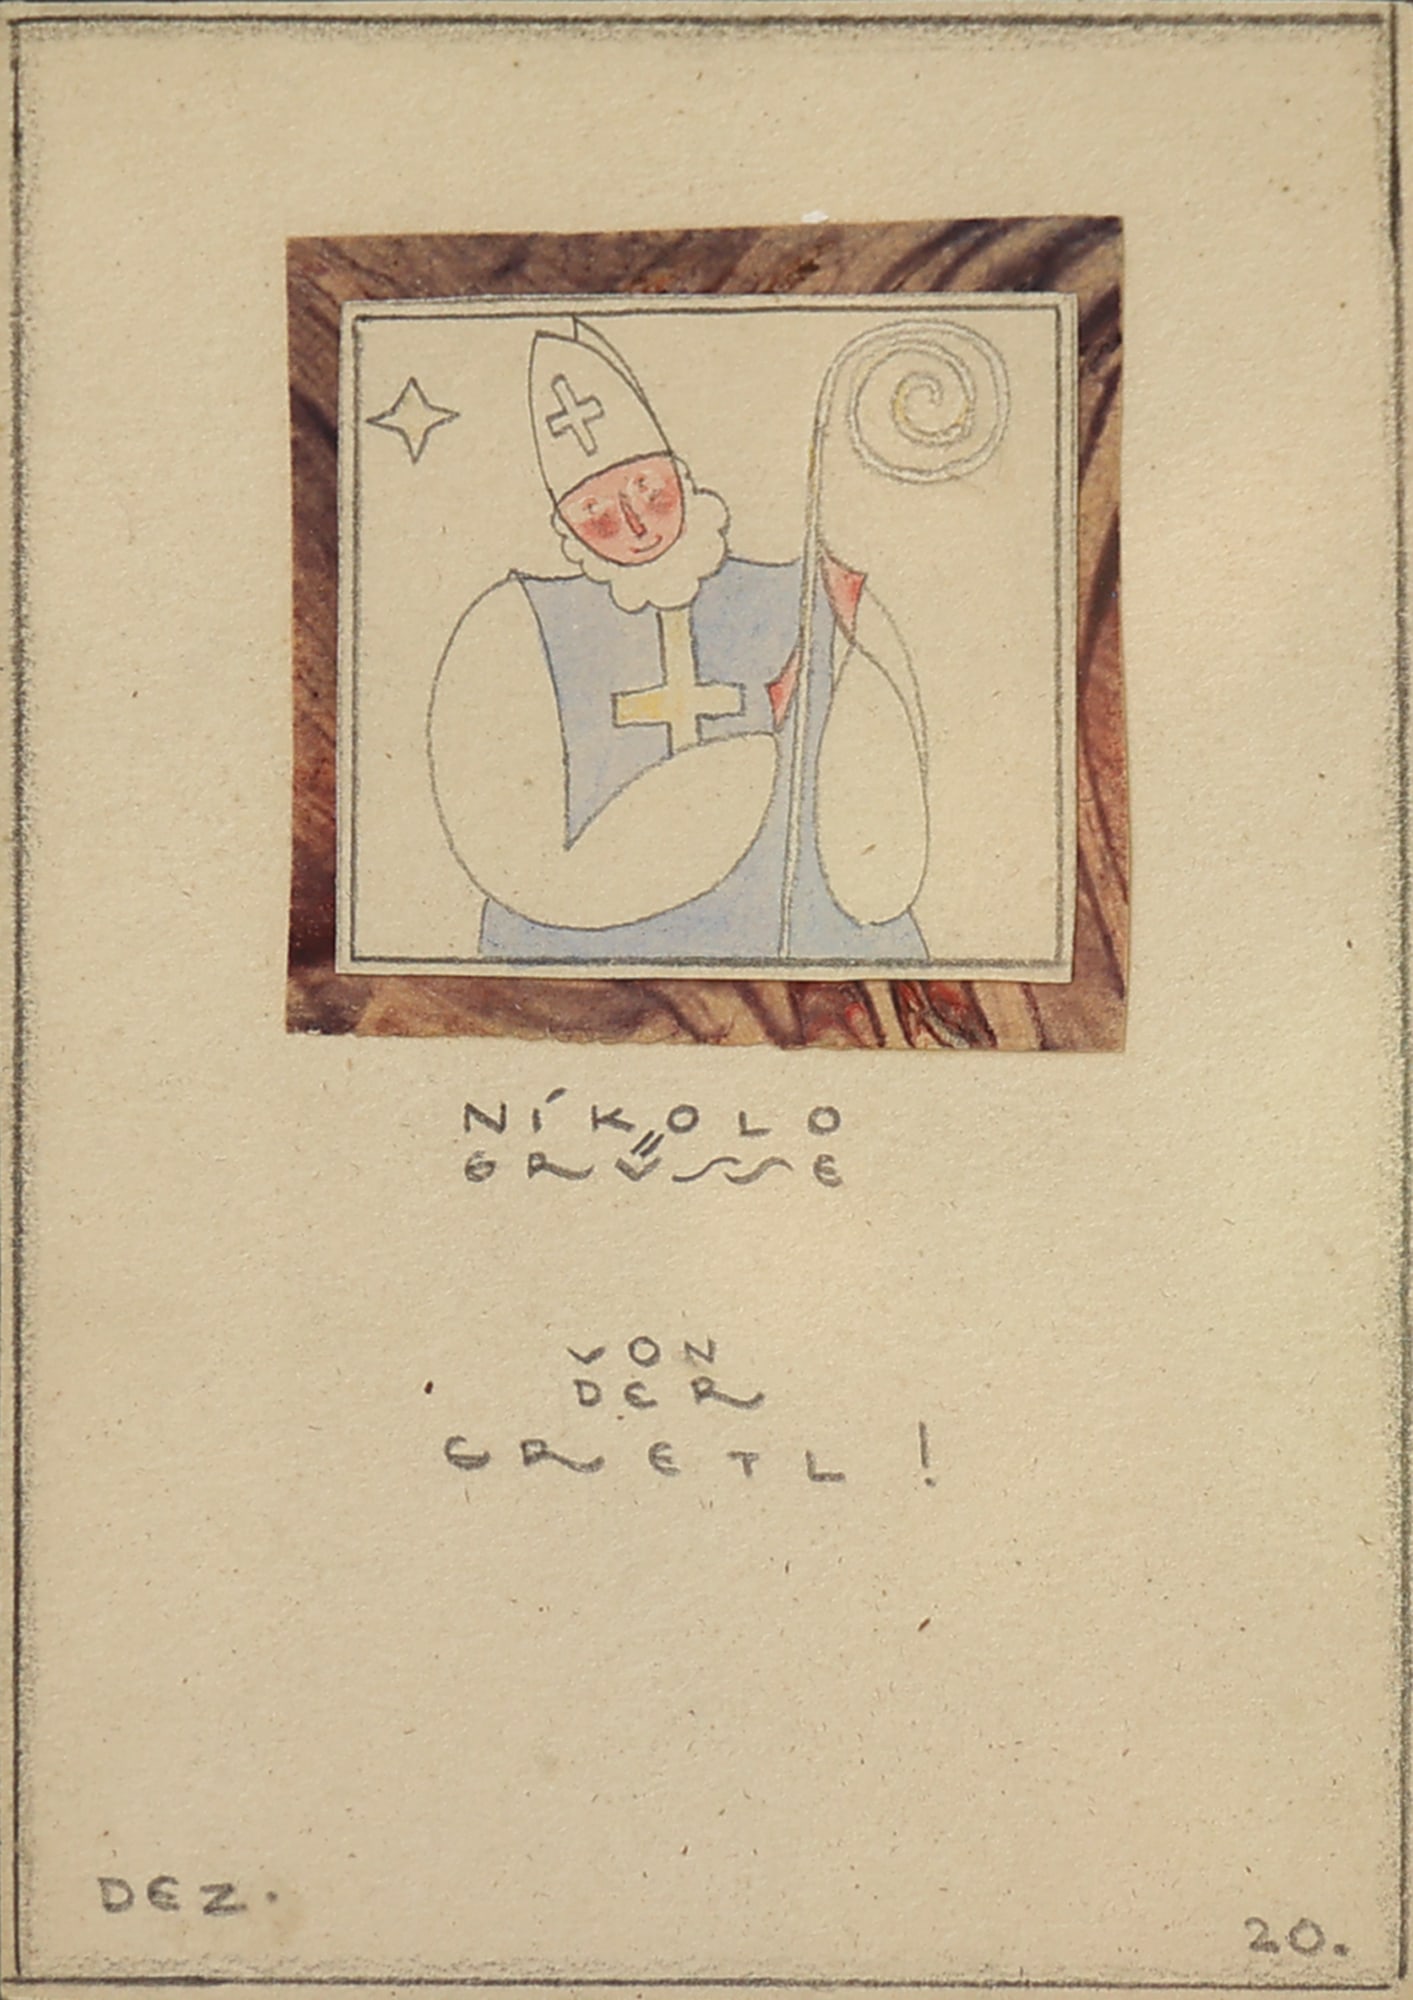 NÍKOLO
GRÜSSE
VON
DER
GRETL !
DEZ.
20.